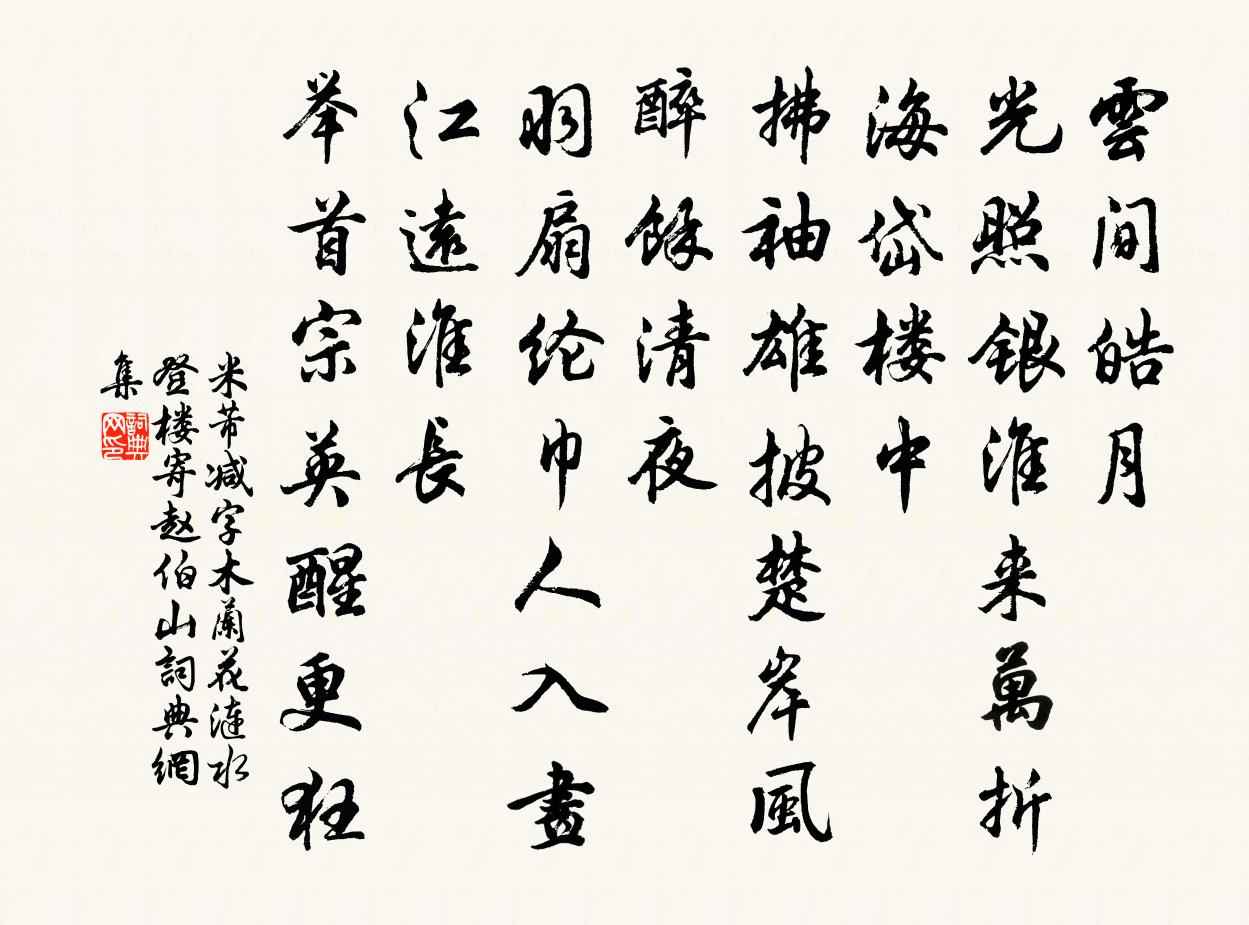 雲間皓月
光照銀淮来萬折
海岱楼中
拂袖雄披楚岸風
醉餘清夜
羽扇纶巾人入畫
江遠淮長
举首宗英醒更狂
米芾减字木蘭花涟水
登楼寄赵伯山詞典網
集
詞典網印